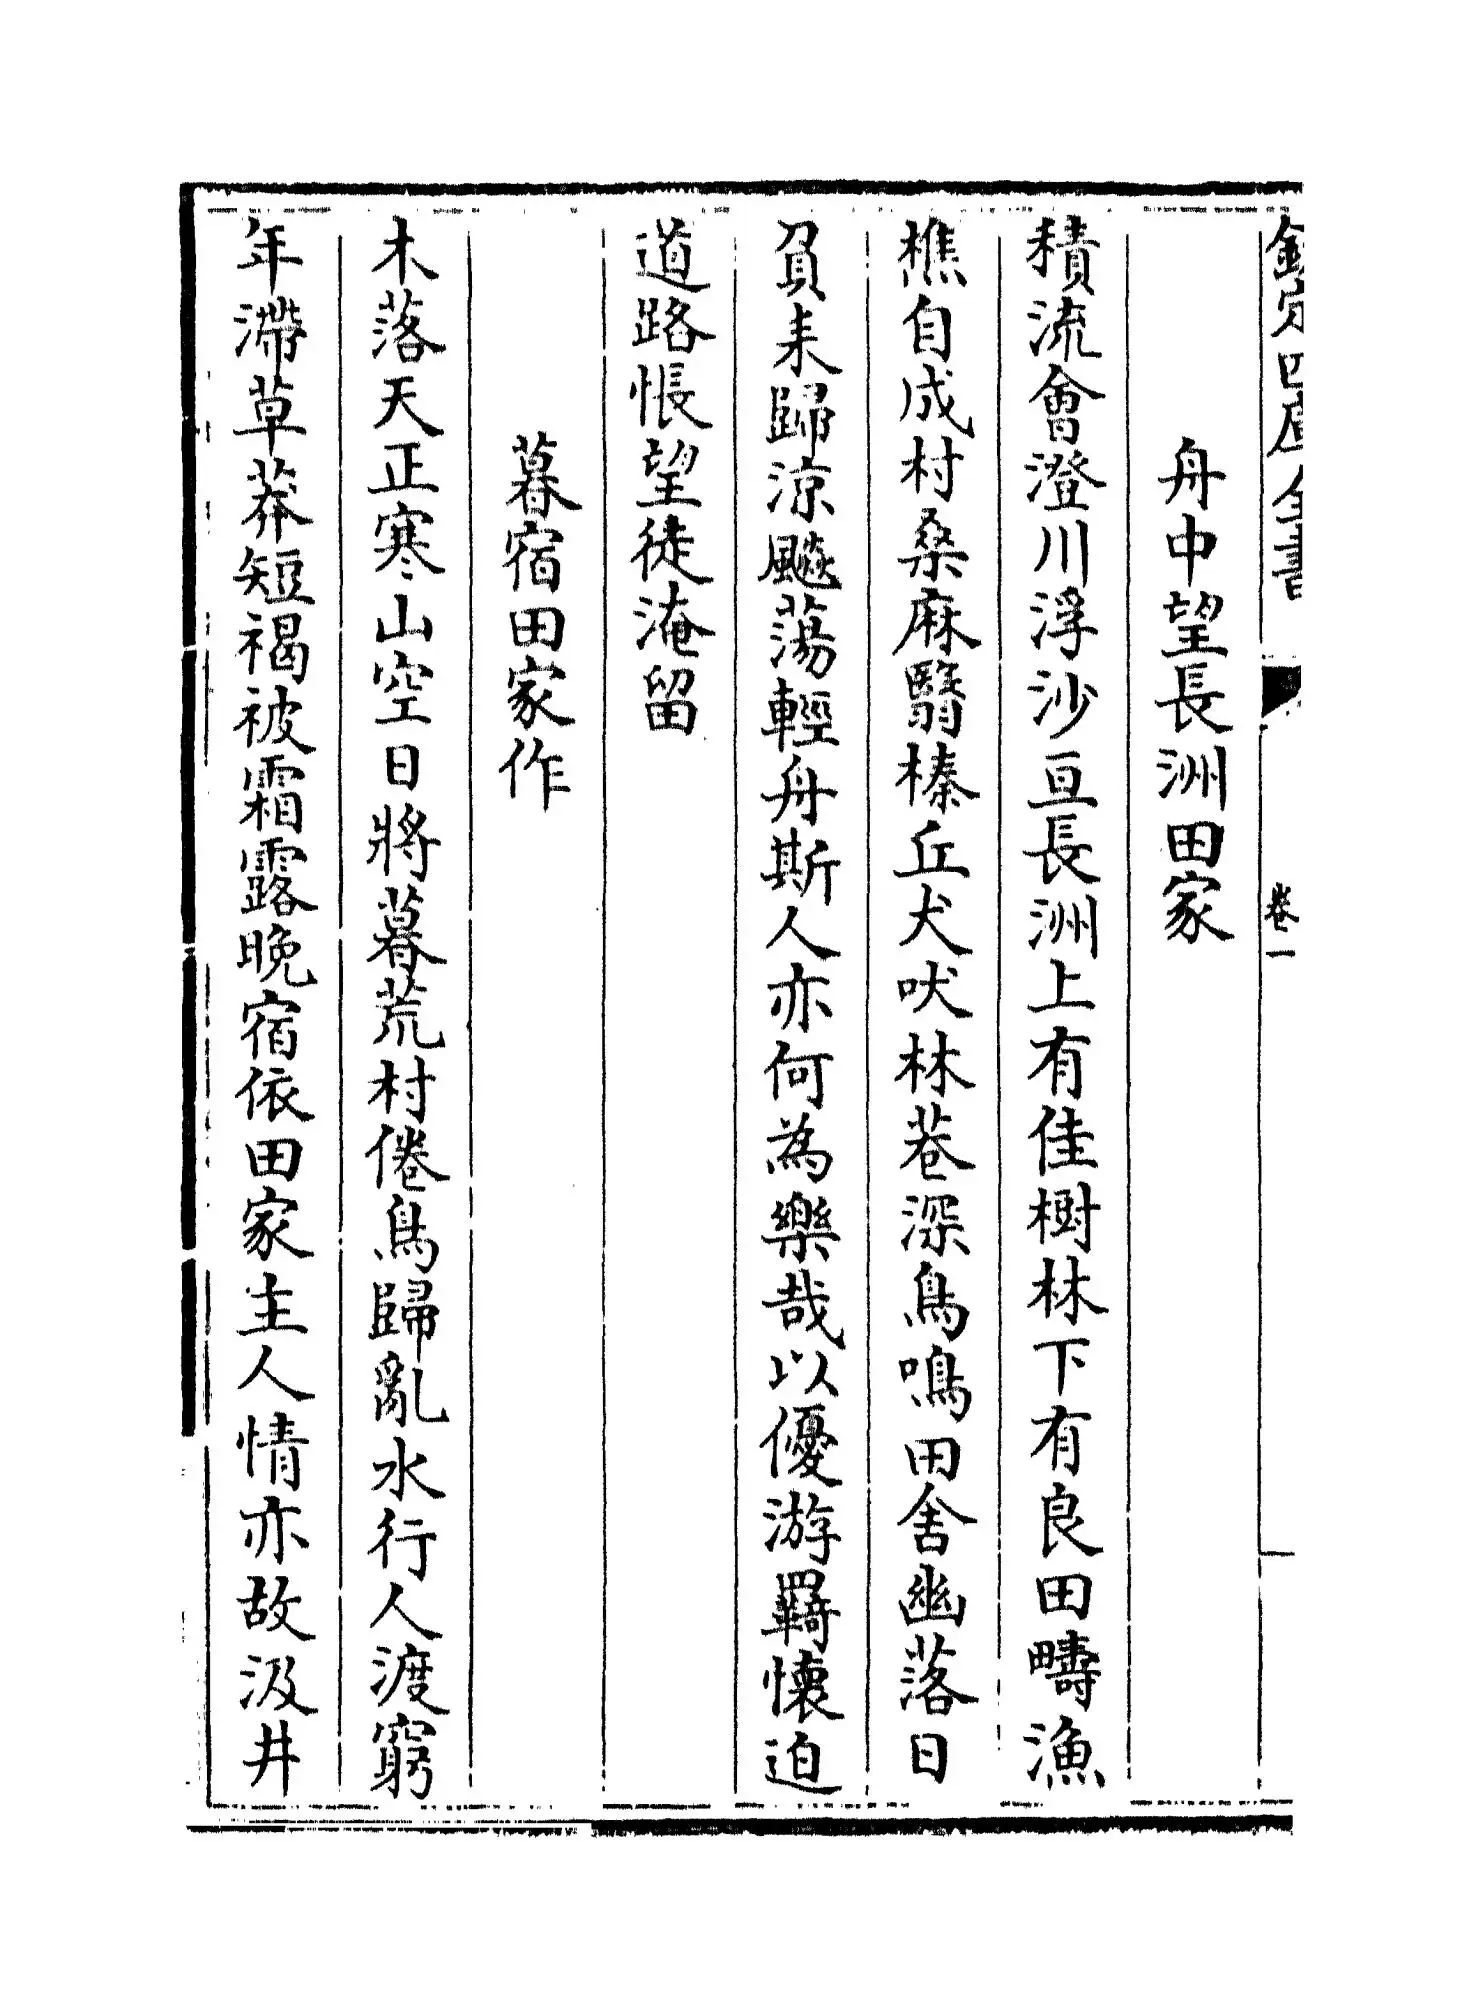 欽定四庫全書
卷一
舟中望長洲田家
積流會澄川浮沙亘長洲上有佳樹林下有良田疇漁
樵自成村桑麻翳榛丘犬吠林巷深鳥鳴田舍幽落日
負耒歸涼飈蕩輕舟斯人亦何為樂哉以優游羇懷迫
道路悵望徒淹留
暮宿田家作
木落天正寒山空日將暮荒村倦鳥歸亂水行人渡窮
年滯草莽短褐被霜露晚宿依田家主人情亦故汲井